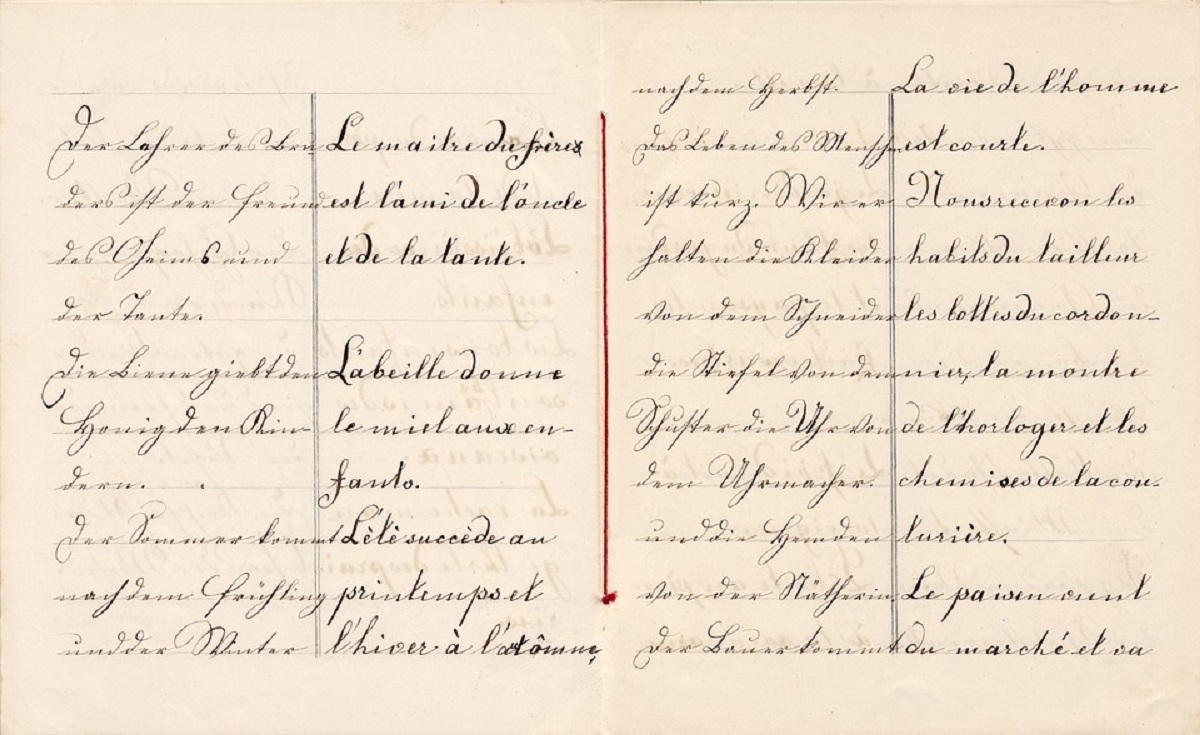 Der Lehrer des Bru
ders ist der Freund
des Oheims und
der Tante.
Die Biene giebt den
Honig den Kin-
dern.
Der Sommer kommt
nach dem Frühling
und der Winter
Le maitre du frère
est l'ami de l'oncle
et de la tante.
L'abeille donne
le miel aux en-
fants.
L'été succède au
printemps et
l'hiver à l'atômne,
nach dem Herbst.
Das Leben des Mensch
ist kurz. Wir er
halten die Kleider
von dem Schneider
die Stiefel von dem
Schuster die Uhr von
dem Uhrmacher.
und die Hemden
von der Nätherin.
Der Bauer kommt
La vie de l'homme
est courte.
Nous recevon les
habits du tailleur
les bottes du cordon-
nier, la montre
de l'horloger et les
chemises de la cou-
turière.
Le paisen vient
du marché et va